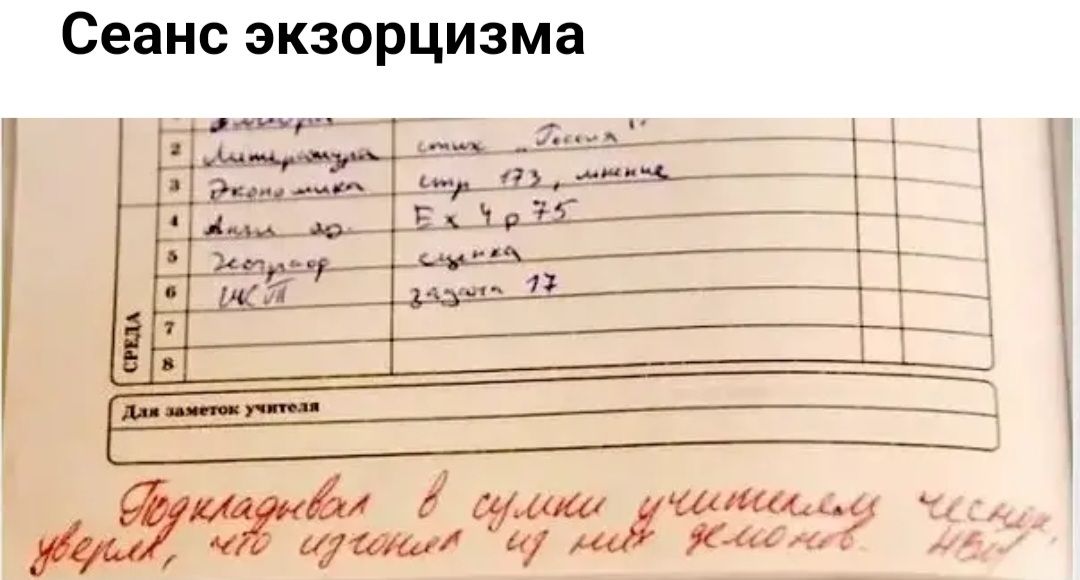 Сеанс экзорцизма
2 Литература стих „Россия"
3 Экономика стр 173, мнение
4 Англ яз. Ex 4 p 75
5 Географ сценка
6 задача 17
7
СРЕДА
8
Для заметок учителя
Подкладывал в сумки учителям чеснок,
уверял, что изгонял из них демонов.